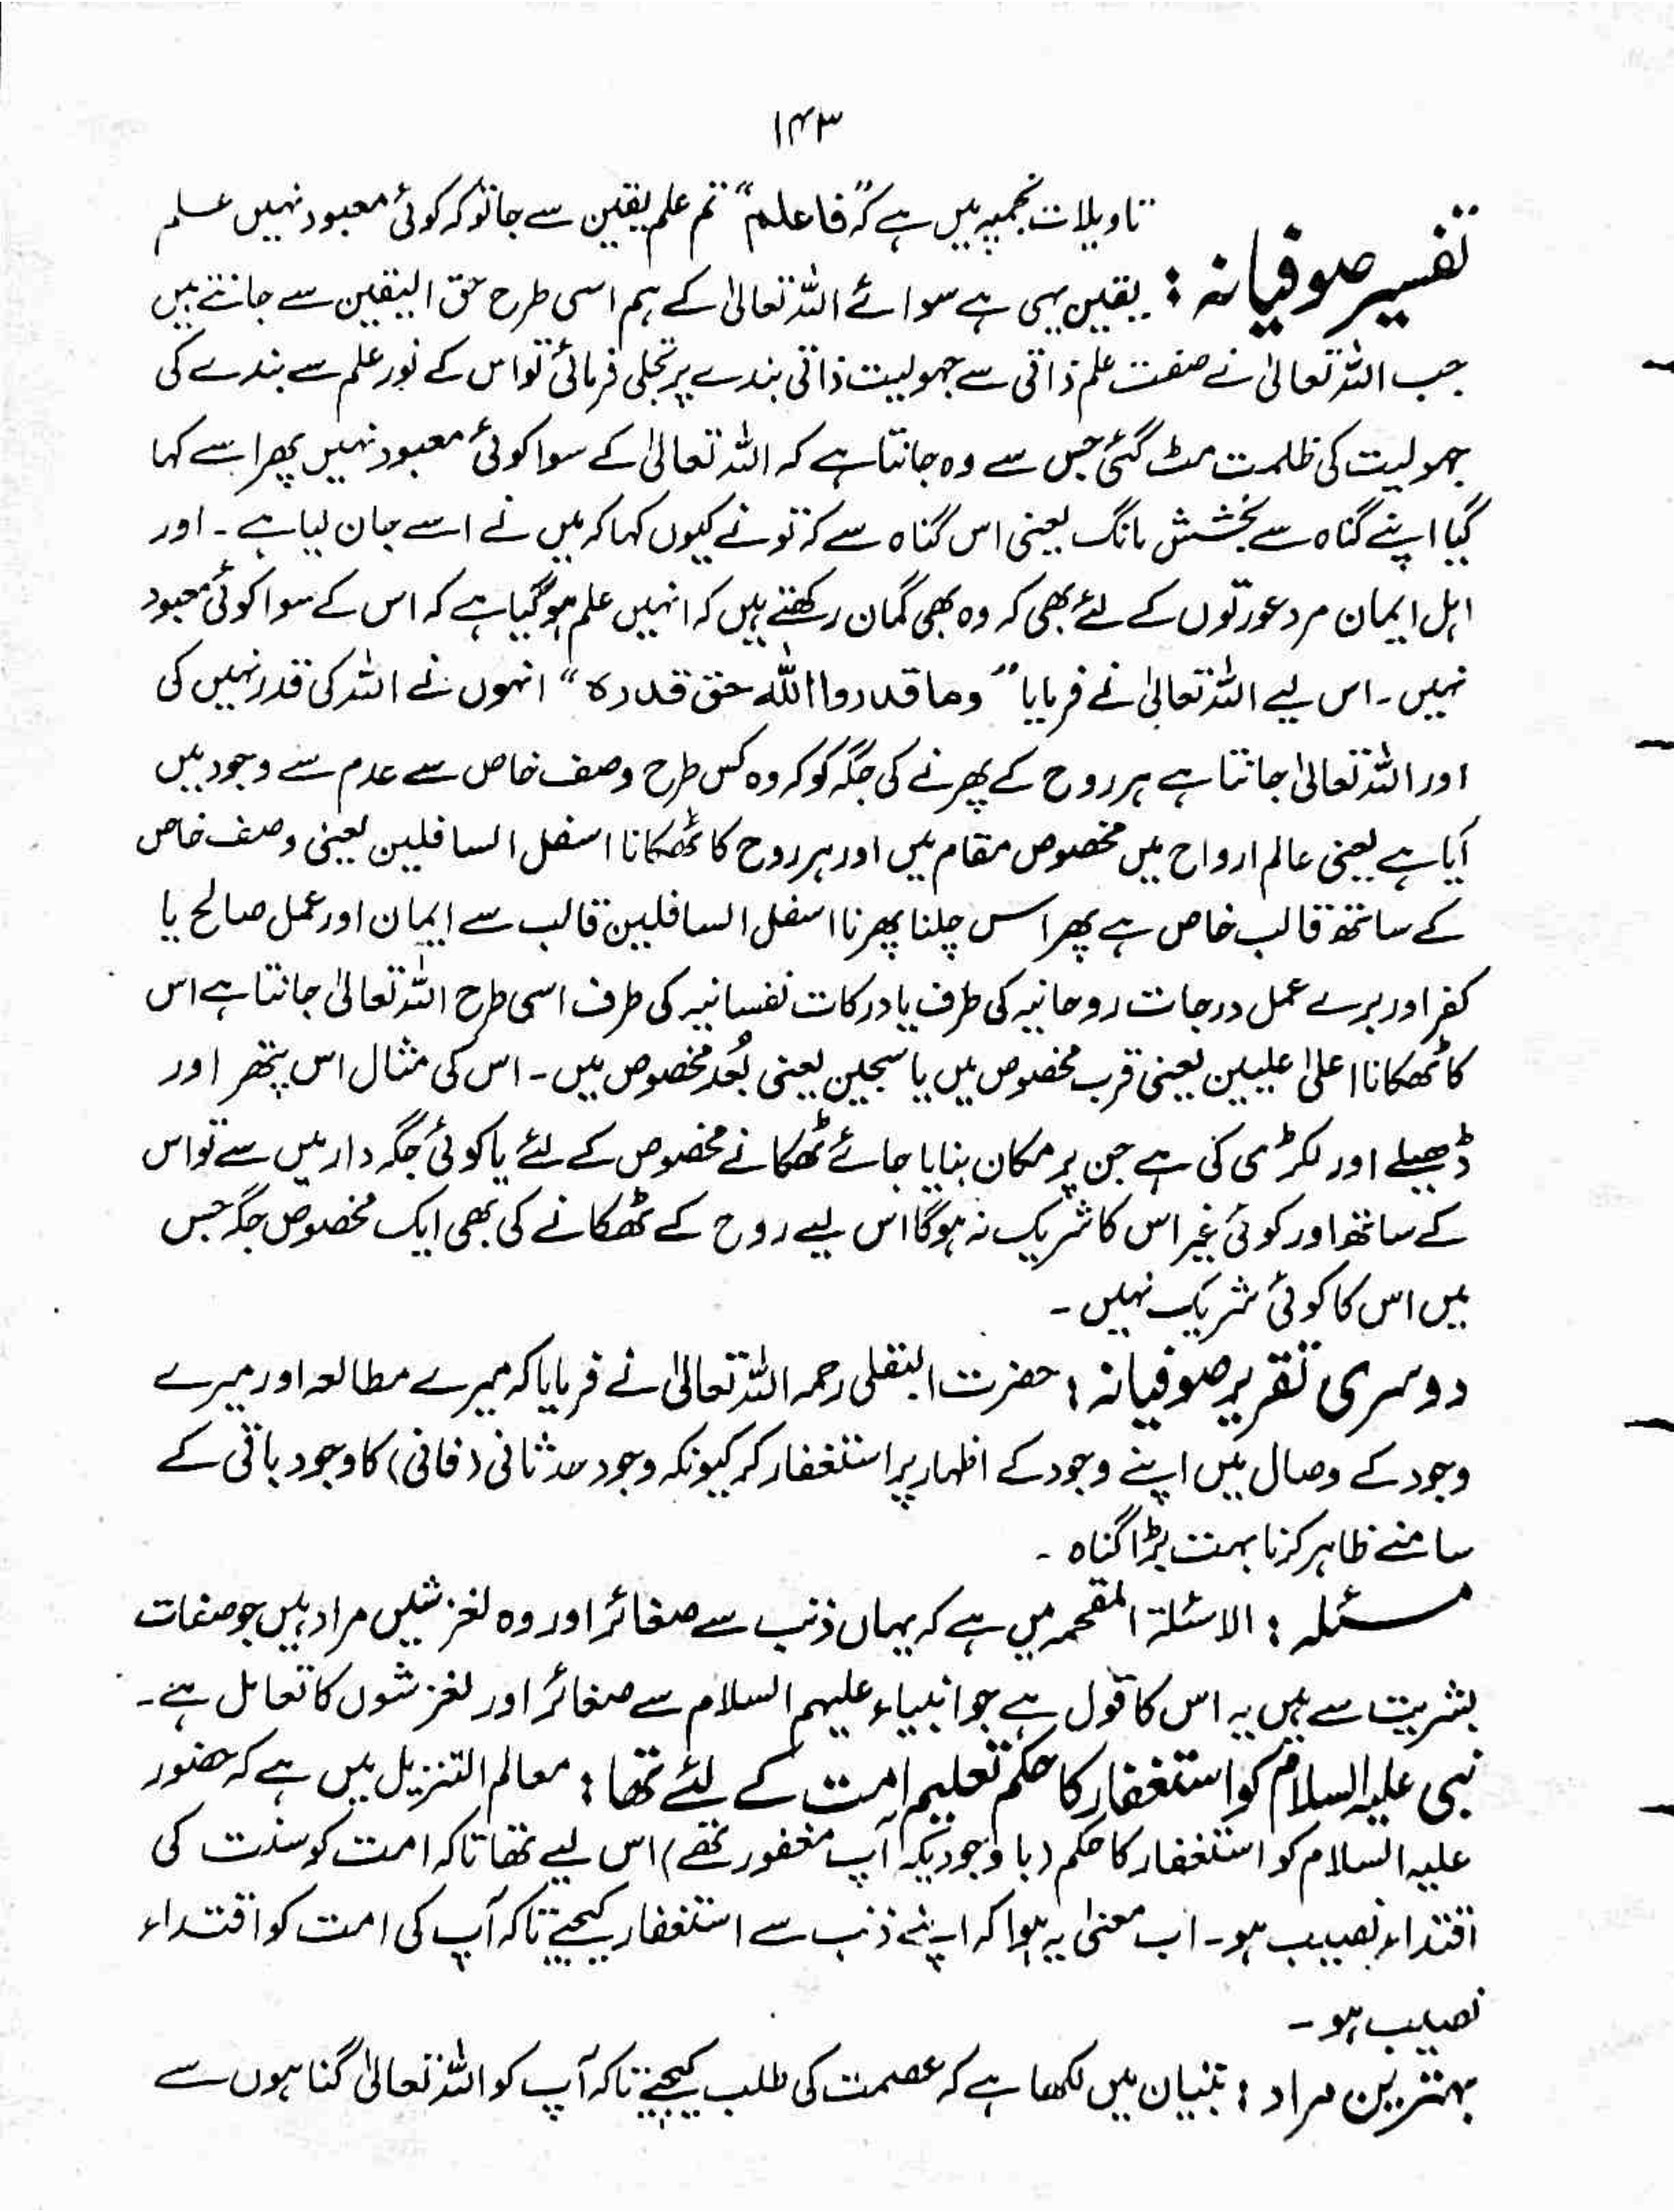 ۱۴۳
تاویلات نجمیہ میں ہے کہ ”فاعلم“ تم علم یقین سے جانو کہ کوئی معبود نہیں علم
تفسیر صوفیانہ : یقین یہی ہے سوائے اللہ تعالیٰ کے ہم اسی طرح حق الیقین سے جانتے ہیں
جب اللہ تعالیٰ نے صفت علم ذاتی سے جہولیت ذاتی بندے پر تجلی فرمائی تو اس کے نور علم سے بندے کی
جہولیت کی ظلمت مٹ گئی جس سے وہ جانتا ہے کہ اللہ تعالیٰ کے سوا کوئی معبود نہیں پھر اسے کہا
گیا اپنے گناہ سے بخشش مانگ یعنی اس گناہ سے کہ تو نے کیوں کہا کہ میں نے اسے جان لیا ہے ۔ اور
اہل ایمان مرد عورتوں کے لئے بھی کہ وہ بھی گمان رکھتے ہیں کہ انہیں علم ہو گیا ہے کہ اس کے سوا کوئی معبود
نہیں ۔ اس لیے اللہ تعالیٰ نے فرمایا ”وما قدروا اللہ حق قدرہ“ انہوں نے اللہ کی قدر نہیں کی
اور اللہ تعالیٰ جانتا ہے ہر روح کے پھرنے کی جگہ کو کہ وہ کس طرح وصف خاص سے عدم سے وجود میں
آیا ہے یعنی عالم ارواح میں مخصوص مقام میں اور ہر روح کا ٹھکانا اسفل السافلین یعنی وصف خاص
کے ساتھ قالب خاص ہے پھر اس چلنا پھرنا اسفل السافلین قالب سے ایمان اور عمل صالح یا
کفر اور برے عمل درجات روحانیہ کی طرف یا درکات نفسانیہ کی طرف اسی طرح اللہ تعالیٰ جانتا ہے اس
کا ٹھکانا اعلیٰ علیین یعنی قرب مخصوص میں یا سجین یعنی بُعد مخصوص میں ۔ اس کی مثال اس پتھر اور
ڈھیلے اور لکڑی کی ہے جن پر مکان بنایا جائے ٹھکانے مخصوص کے لئے یا کوئی جگہ دار میں سے تو اس
کے ساتھ اور کوئی غیر اس کا شریک نہ ہوگا اس لیے روح کے ٹھکانے کی بھی ایک مخصوص جگہ جس
میں اس کا کوئی شریک نہیں ۔
دوسری تقریر صوفیانہ : حضرت البقلی رحمہ اللہ تعالیٰ نے فرمایا کہ میرے مطالعہ اور میرے
وجود کے وصال میں اپنے وجود کے اظہار پر استغفار کر کیونکہ وجود حدثانی (فانی) کا وجود باقی کے
سامنے ظاہر کرنا بہت بڑا گناہ ۔
مسئلہ : الاسئلۃ المقحمہ میں ہے کہ یہاں ذنب سے صغائر اور وہ لغزشیں مراد ہیں جو صفات
بشریت سے ہیں یہ اس کا قول ہے جو انبیاء علیہم السلام سے صغائر اور لغزشوں کا تعامل ہے ۔
نبی علیہ السلام کو استغفار کا حکم تعلیم امت کے لئے تھا : معالم التنزیل میں ہے کہ حضور
علیہ السلام کو استغفار کا حکم (باوجودیکہ آپ مغفور تھے) اس لیے تھا تاکہ امت کو سنت کی
اقتداء نصیب ہو ۔ اب معنیٰ یہ ہوا کہ اپنے ذنب سے استغفار کیجئے تاکہ آپ کی امت کو اقتداء
نصیب ہو ۔
بہترین مراد : تبیان میں لکھا ہے کہ عصمت کی طلب کیجئے تاکہ آپ کو اللہ تعالیٰ گناہوں سے